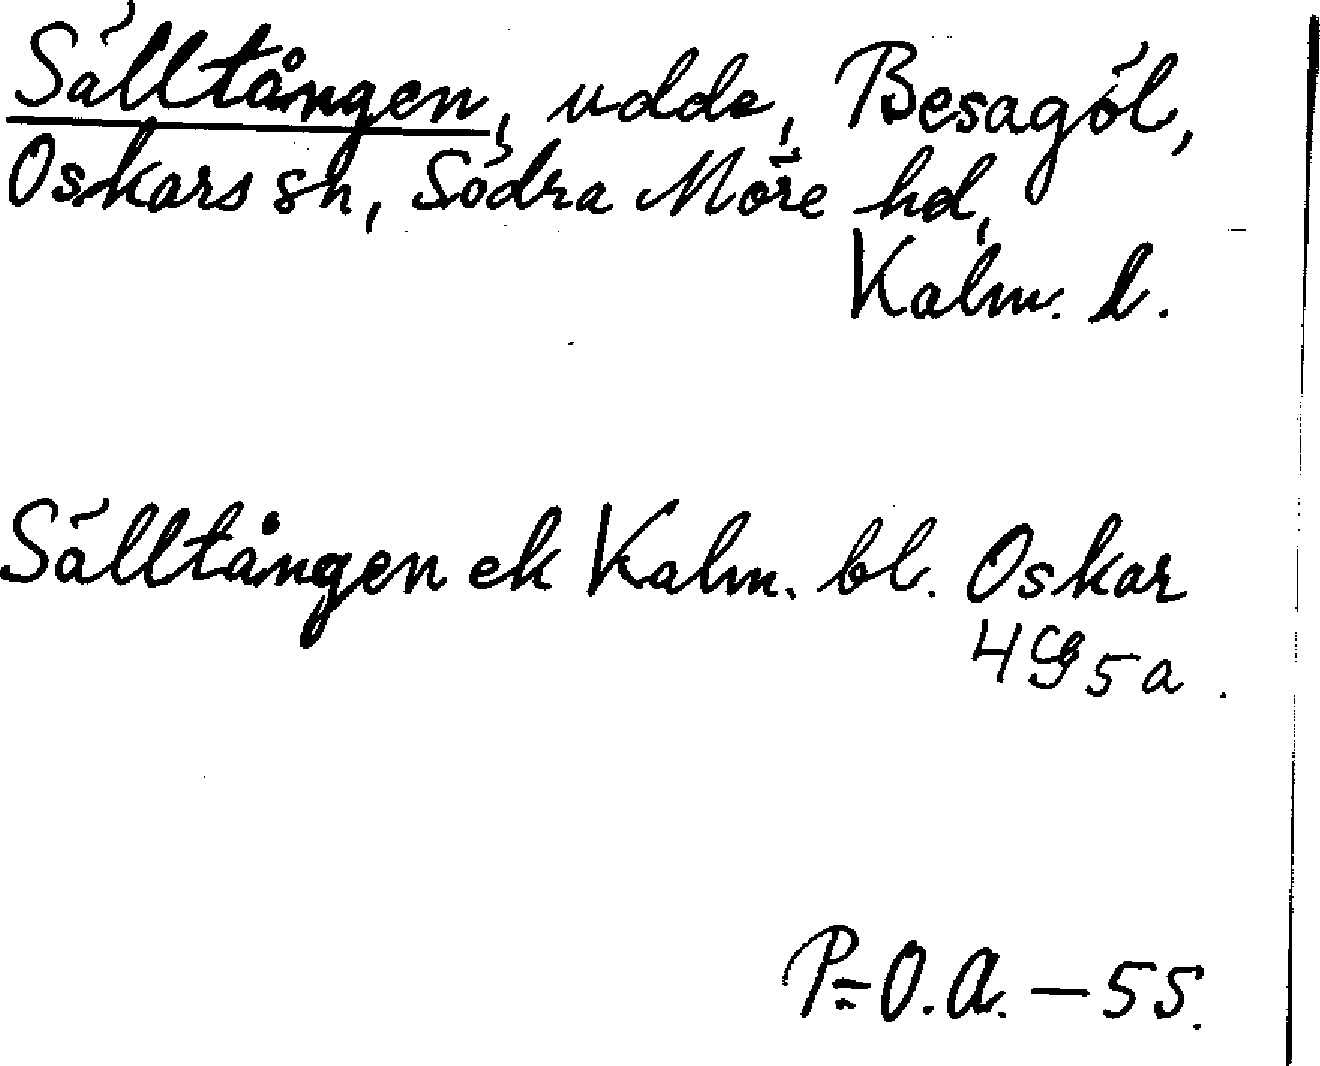 Sälltången, udde, Besagöl,
Oskars sn, Södra Möre hd,
Kalm. l.
Sälltången ek Kalm. bl. Oskar
4G5a.
P-O.A. - 55.